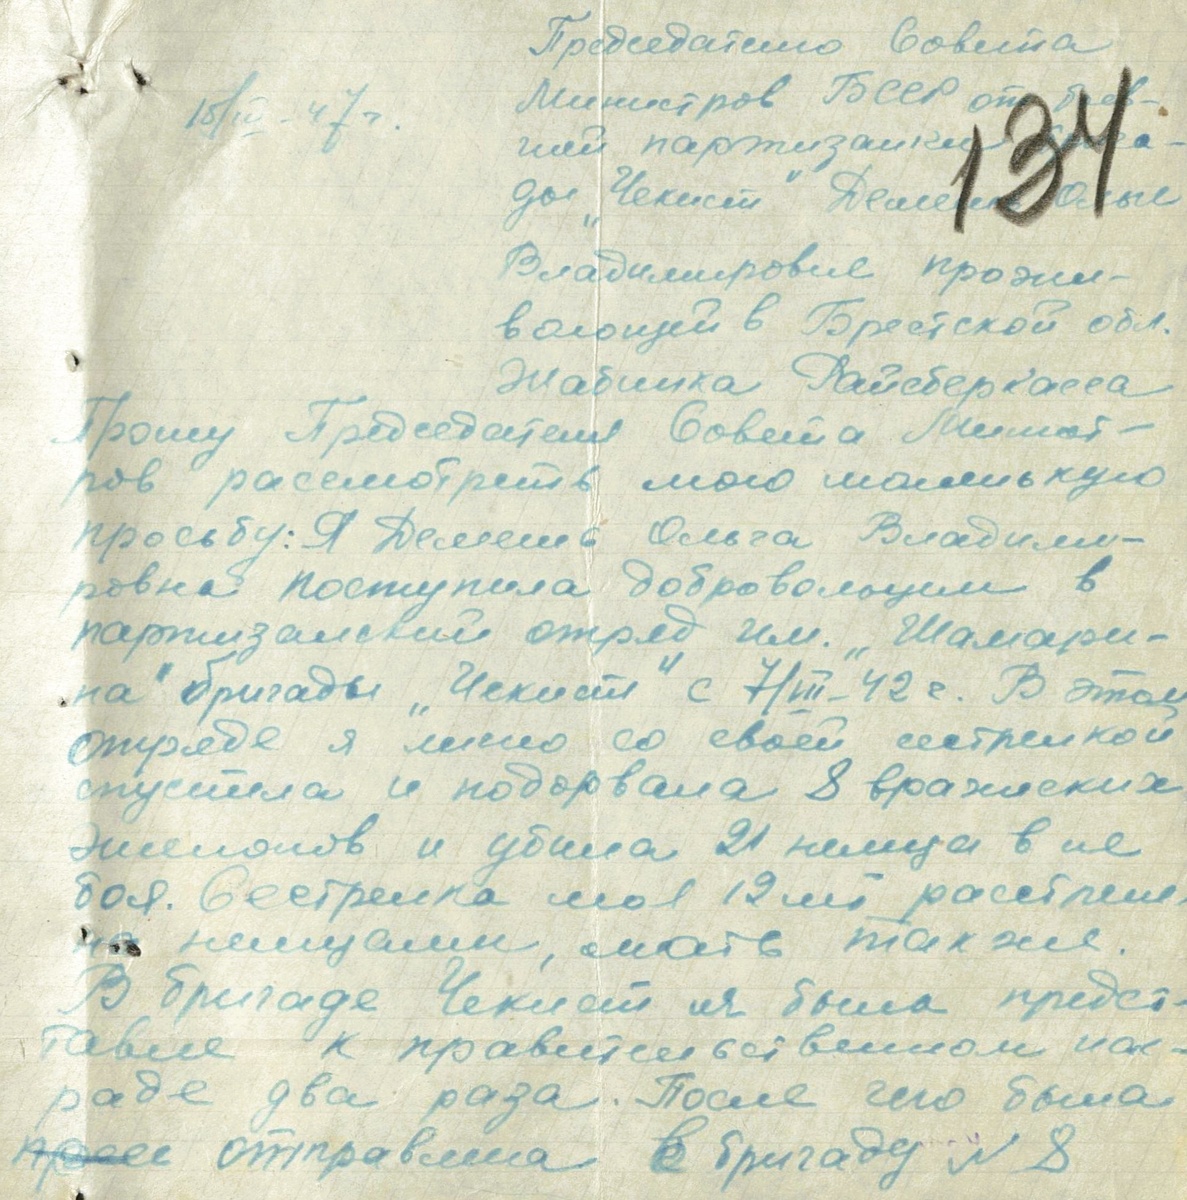 Председателю Совета
15/III-47 г.
Министров БССР от быв-
шей партизанки брига-
ды „Чекист" Демеш Ольи
Владимировне прожи-
вающей в Брестской обл.
Жабинка Райсберкасса
134
Прошу Председателя Совета Минист-
ров рассмотреть мою маленькую
просьбу: Я Демеш Ольга Владими-
ровна поступила добровольцем в
партизанский отряд им. „Шамари-
на" бригады „Чекист" с 7/III-42 г. В этом
отряде я лично со своей сестренкой
спустила и подорвала 8 вражеских
эшелонов и убила 21 немца в
боя. Сестренка моя 12 лет расстреле
на немцами, мать также.
В бригаде Чекист я была предст-
тавле к правительственном наг-
раде два раза. После чего была
отправлена в бригаду N 8